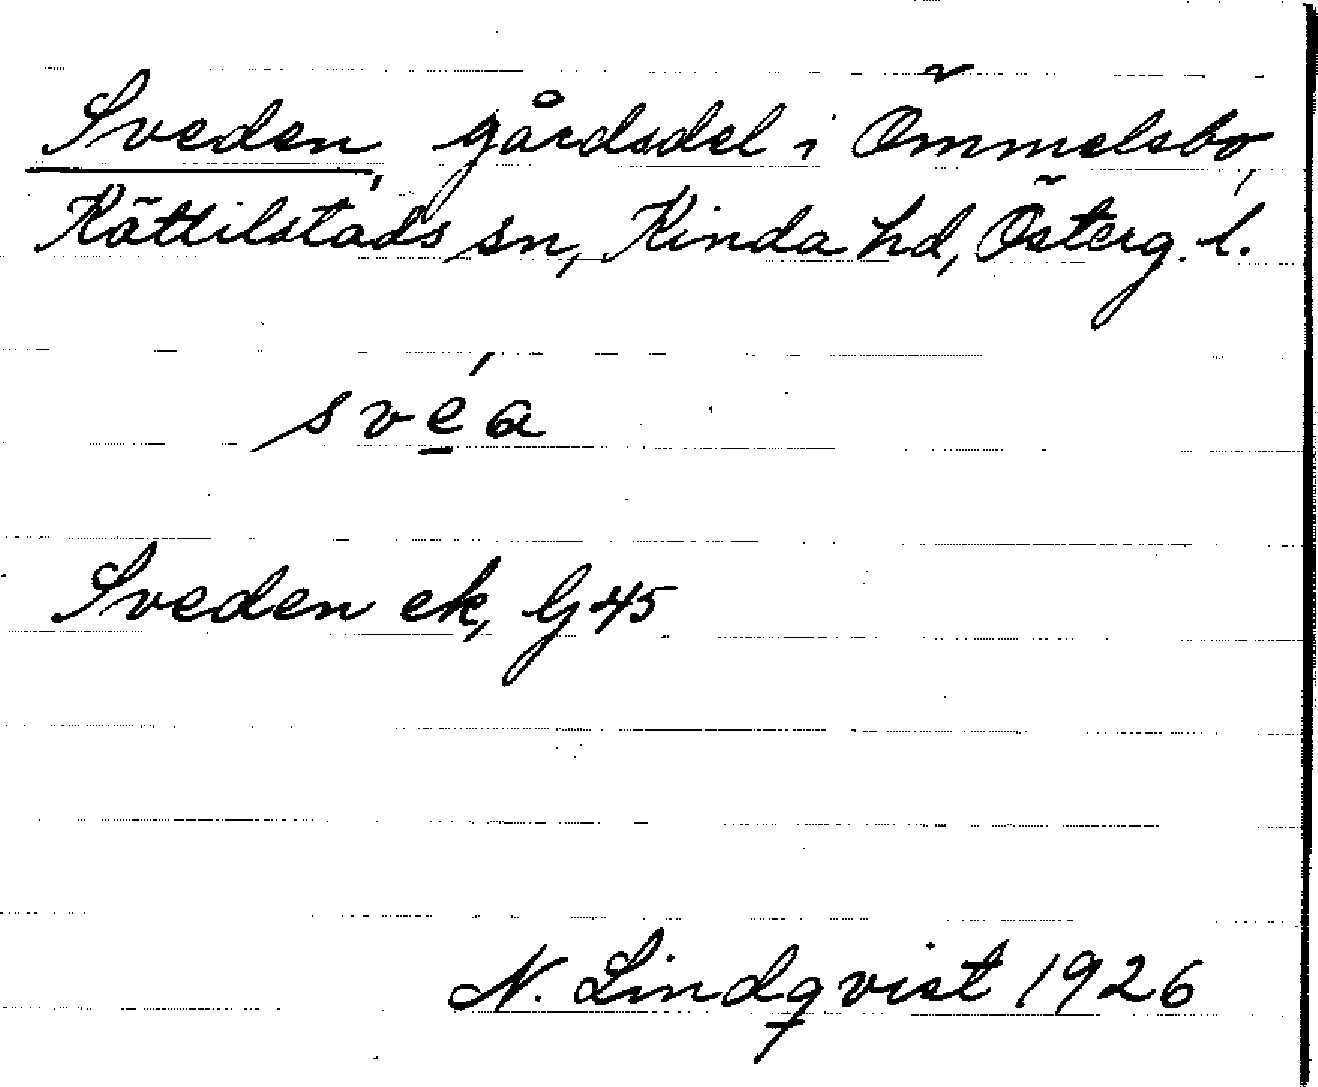 Sveden, gårdsdel i Ömmelsbo,
Kättilstads sn, Kinda hd, Österg. l.
své̱a
Sveden ek, G 45
N. Lindqvist 1926